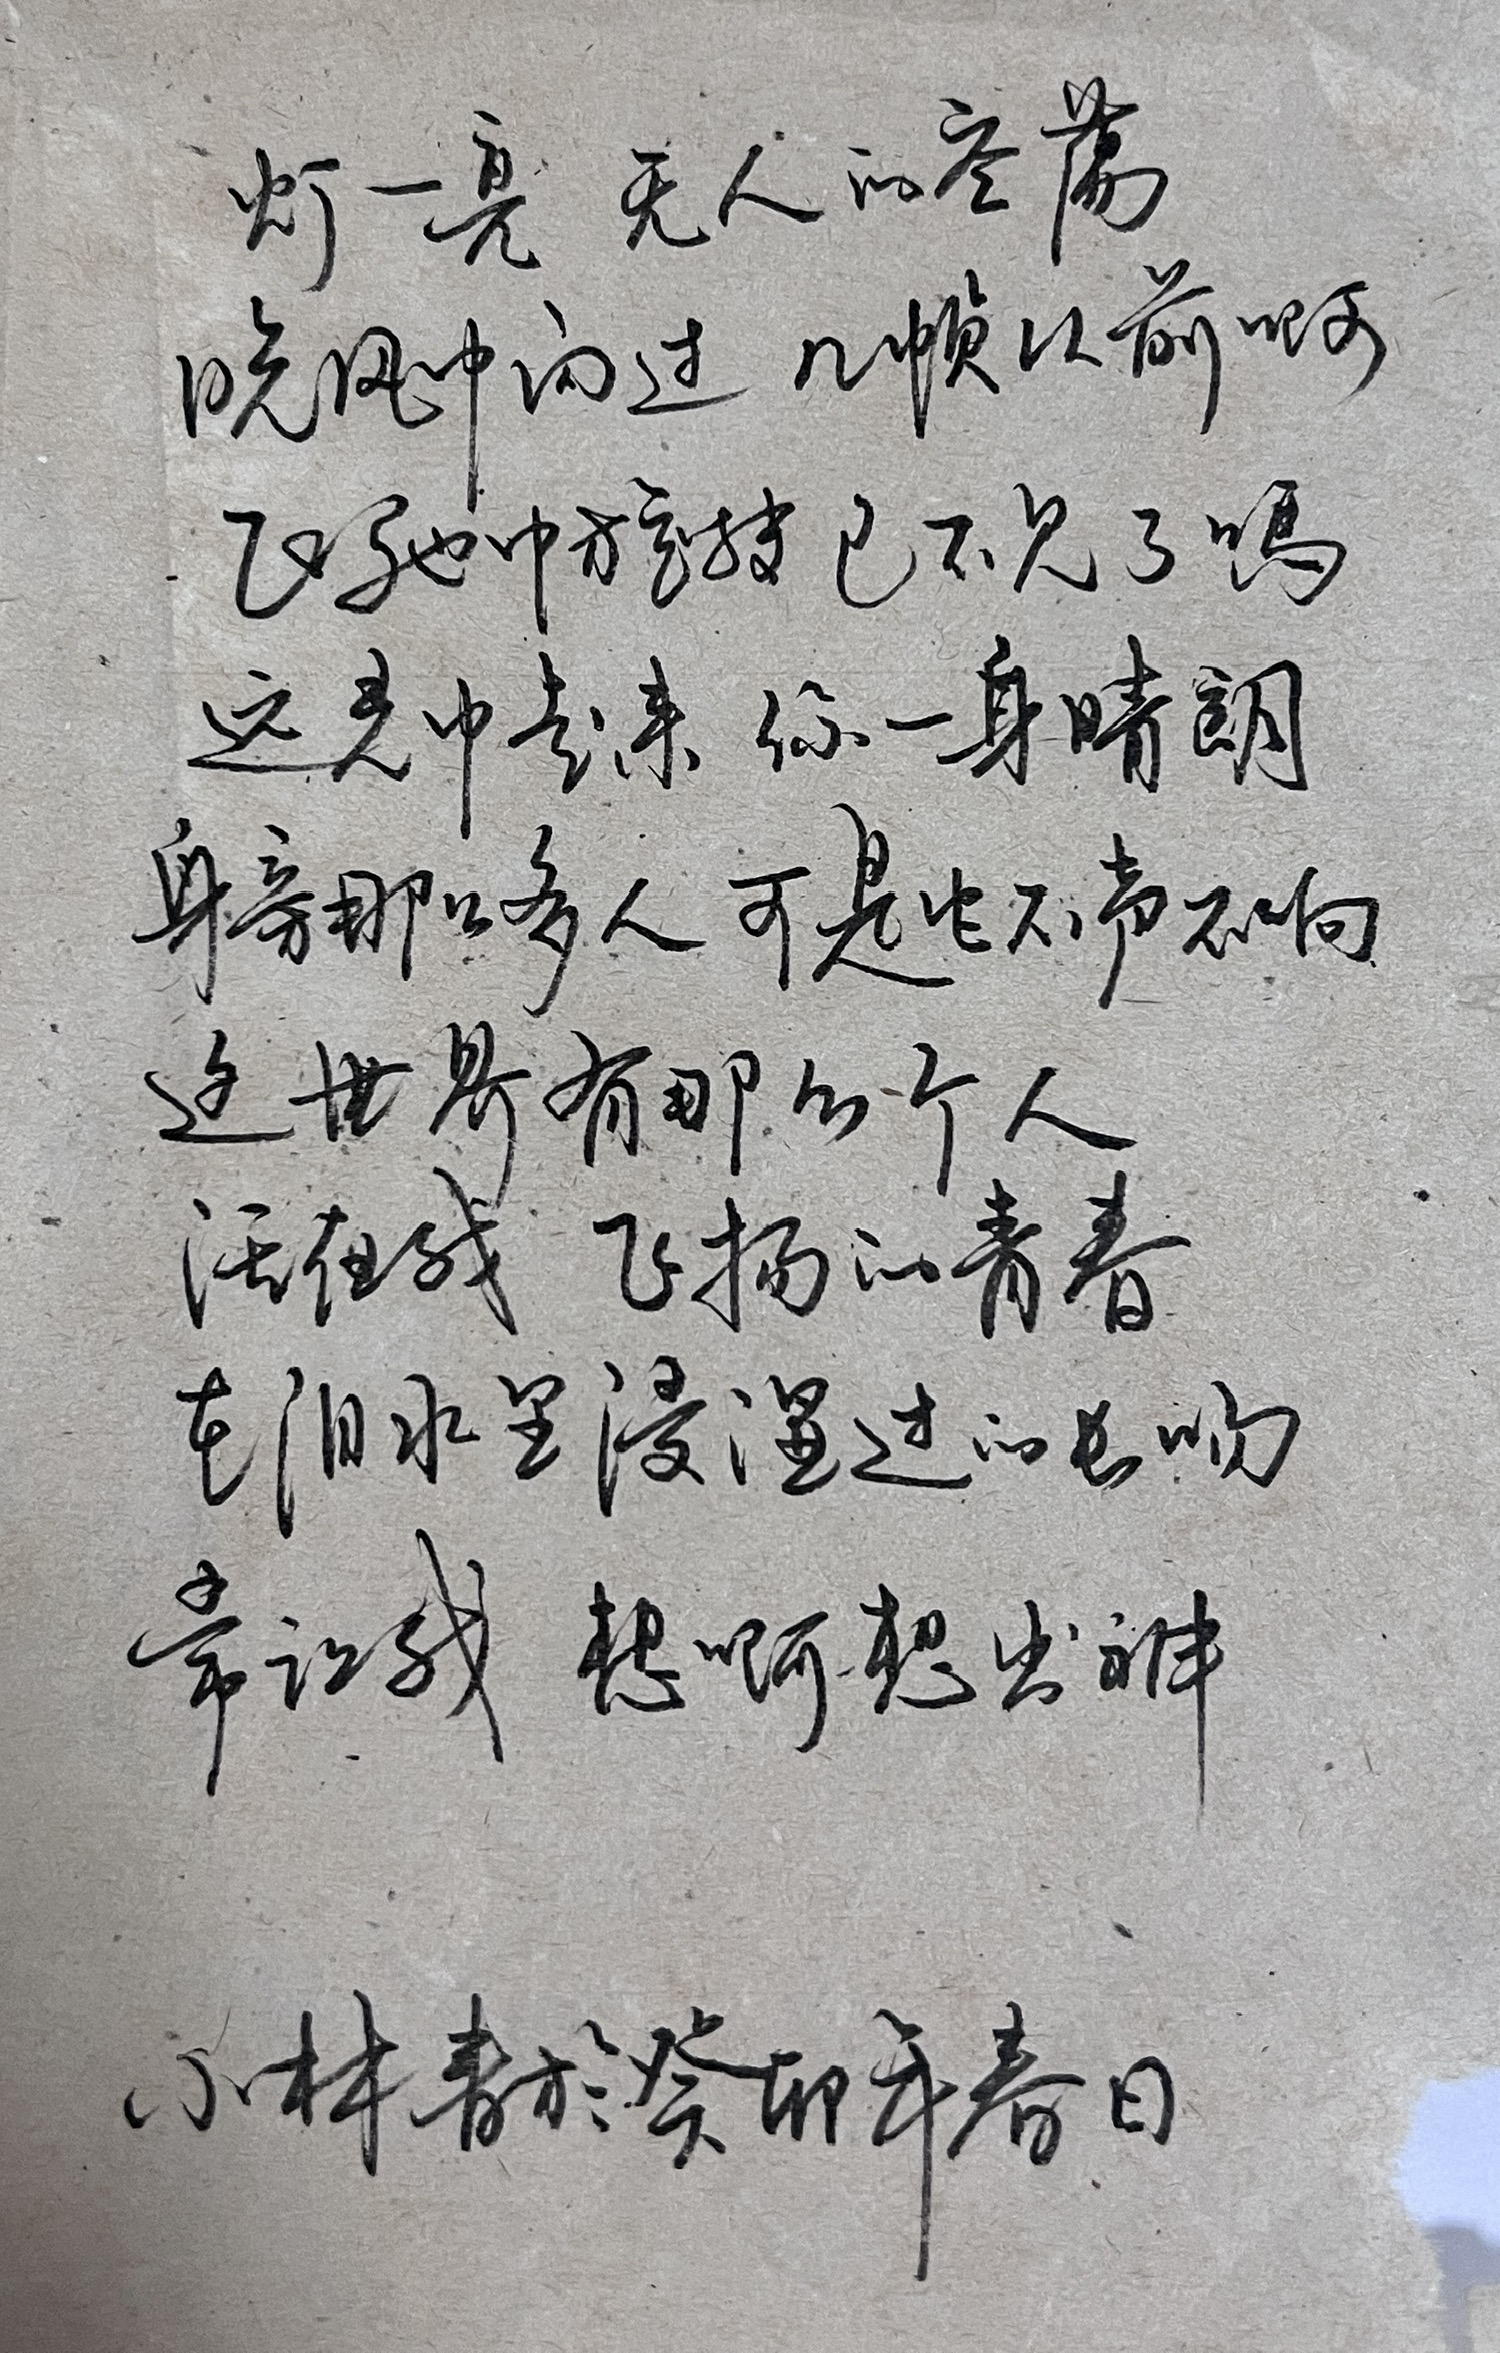 灯一亮 无人的空荡
晚风中闪过 几帧从前啊
飞驰中旋转 已不见了吗
远光中走来 你一身晴朗
身旁那么多人 可是也不声不响
这世界有那么个人
活在我 飞扬的青春
在泪水里浸湿过的长吻
常让我 想啊想出神
小林青於癸卯年春日